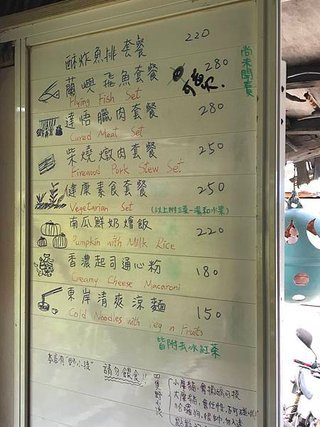 酥炸魚排套餐 220
蘭嶼飛魚套餐 280
Flying Fish Set
尚未開賣
達悟臘肉套餐 280
Cured Meat Set
柴燒燉肉套餐 250
Firewood Pork Stew Set
健康素食套餐 250
Vegetarian Set (以上附三菜一湯和水果)
南瓜鮮奶燴飯 220
Pumpkin with Milk Rice
香濃起司通心粉 180
Creamy Cheese Macaroni
東岸清爽涼麵 150
Cold Noodles with veg n Fruits
皆附去冰紅茶
本店有
請勿餵食!!